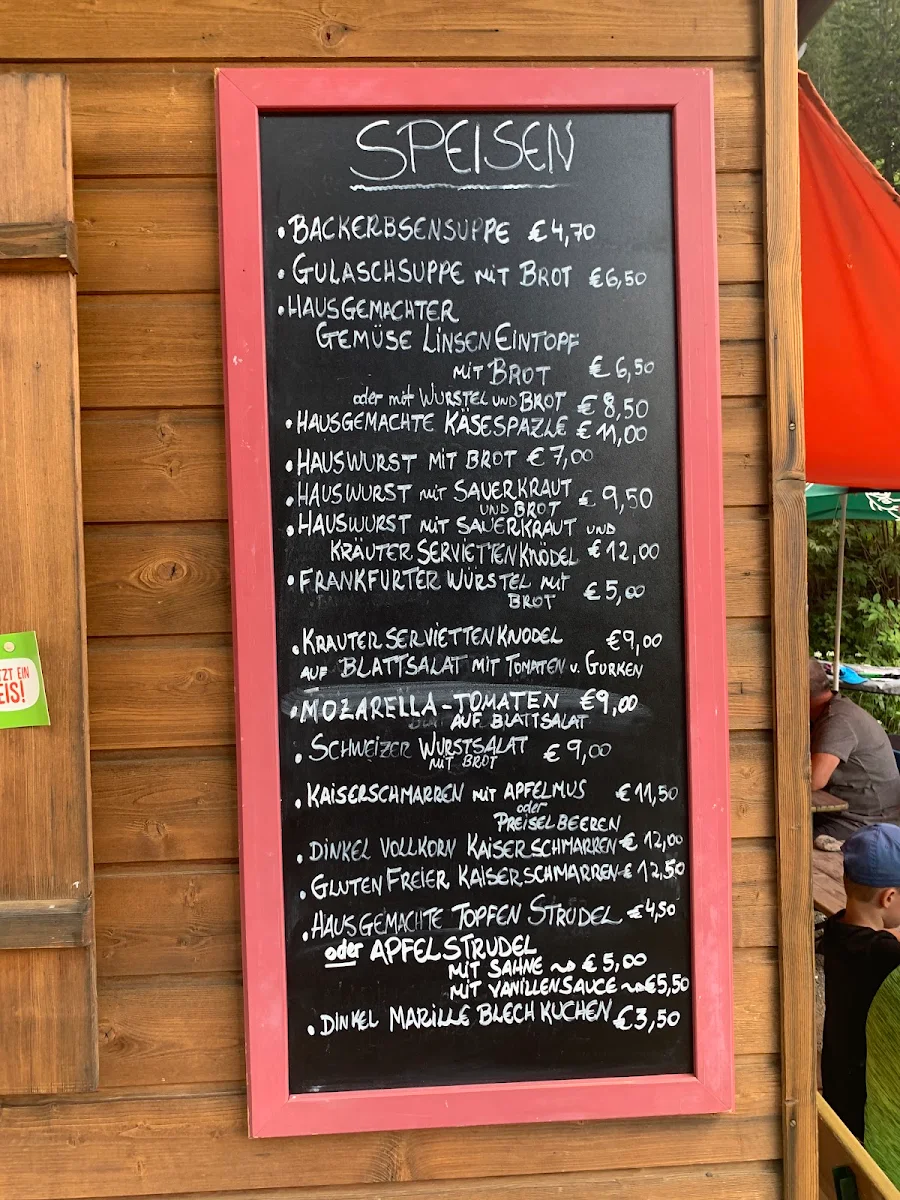 SPEISEN
• BACKERBSENSUPPE €4,70
• GULASCHSUPPE MIT BROT €6,50
• HAUSGEMACHTER
GEMÜSE LINSEN EINTOPF
MIT BROT €6,50
oder mit WURSTEL UND BROT €8,50
• HAUSGEMACHTE KÄSESPAZLE €11,00
• HAUSWURST MIT BROT €7,00
• HAUSWURST MIT SAUERKRAUT €9,50
UND BROT
• HAUSWURST MIT SAUERKRAUT UND
KRÄUTER SERVIETTEN KNÖDEL €12,00
• FRANKFURTER WÜRSTEL MIT €5,00
BROT
• KRAUTER SERVIETTEN KNODEL €9,00
AUF BLATTSALAT MIT TOMATEN U. GURKEN
• MOZARELLA-TOMATEN €9,00
AUF BLATTSALAT
• SCHWEIZER WURSTSALAT €9,00
MIT BROT
• KAISERSCHMARREN MIT APFELMUS €11,50
oder
PREISELBEEREN
• DINKEL VOLLKORN KAISERSCHMARREN € 12,00
• GLUTEN FREIER KAISERSCHMARREN € 12,50
• HAUSGEMACHTE TOPFEN STRUDEL €4,50
oder APFELSTRUDEL
MIT SAHNE ~> €5,00
MIT VANILLENSAUCE ~> €5,50
• DINKEL MARILLE BLECH KUCHEN €3,50
ZT EIN
EIS!